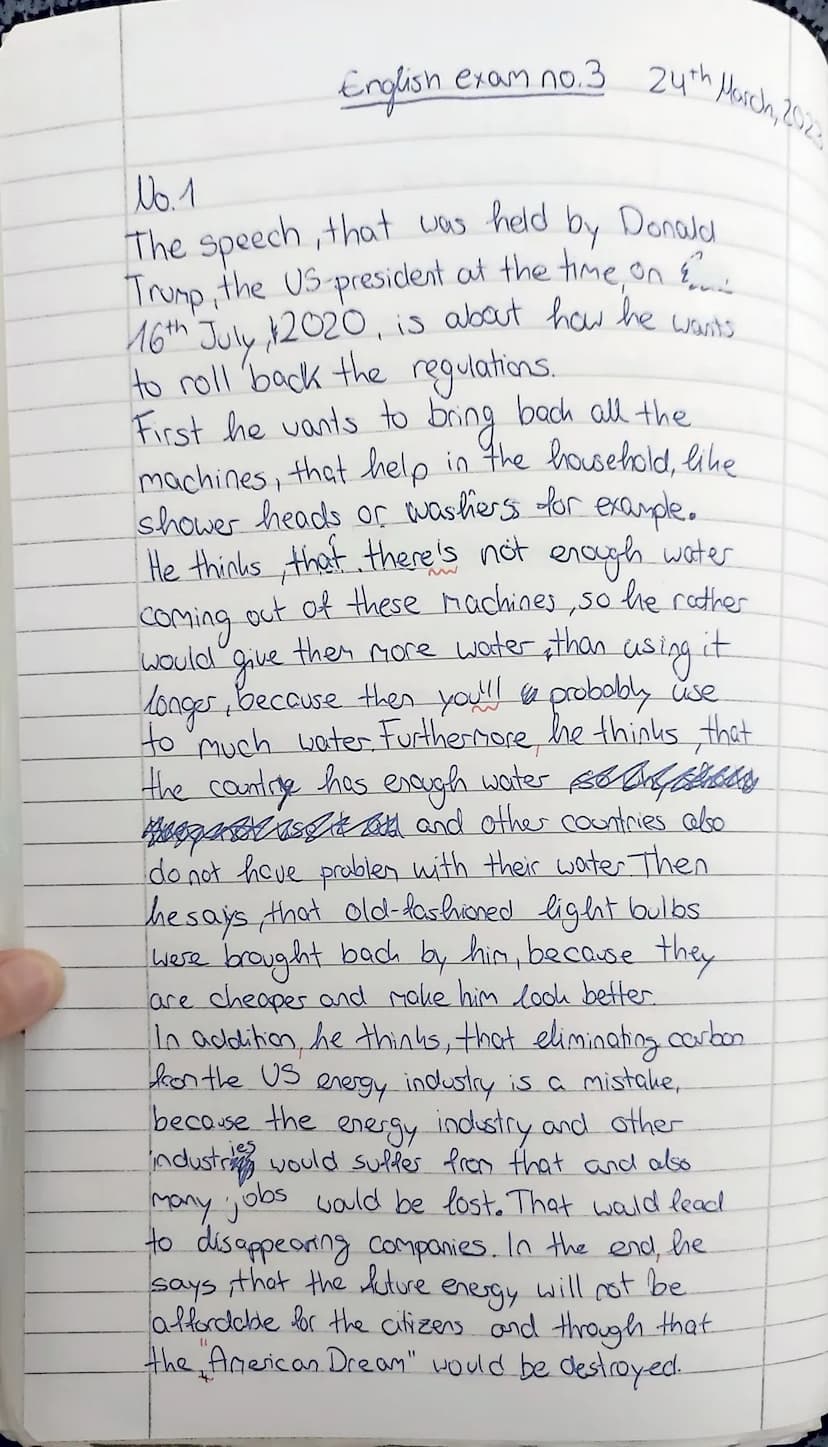 English exam no.3 24th March, 2023
No. 1
The speech, that was held by Donald
Trump, the US-president at the time, on
16th July, 2020, is about how he wants
to roll back the regulations.
First he wants to bring back all the
machines, that help in the household, like
shower heads or washers for example.
He thinks, that there's not enough water
coming out of these machines, so he rather
would give them more water, than using it
longer, because then you'll probably use
to much water. Furthermore, he thinks, that
the country has enough water
and other countries also
do not have problem with their water. Then
he says, that old-fashioned light bulbs
were brought back by him, because they
are cheaper and make him look better.
In addition, he thinks, that eliminating carbon
from the US energy industry is a mistake,
because the energy industry and other
industries would suffer from that and also
many jobs would be lost. That would lead
to disappearing companies. In the end, he
says, that the future energy will not be
affordable for the citizens and through that
the "American Dream" would be destroyed.